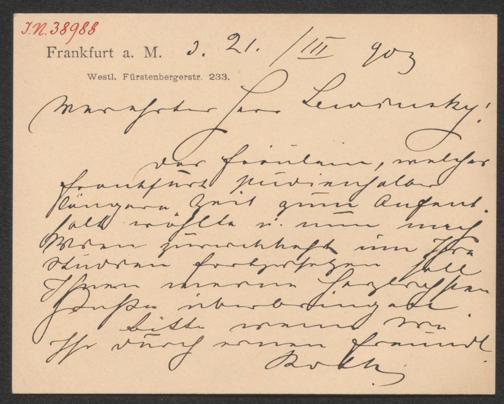 I.N. 38988
Frankfurt a. M. d. 21. / III 903
Westl. Fürstenbergerstr. 233.
Verehrter Herr Lewinsky!
Das Fräulein, welches
Frankfurt studienhalber
längere Zeit zum Aufent-
halt wählte u. nun nach
Wien zurückkehrt um Ihre
Studien fortzusetzen soll
Ihnen meine herzlichsten
Grüße überbringen.
bitte wenn
Ihr durch einen Freundl.